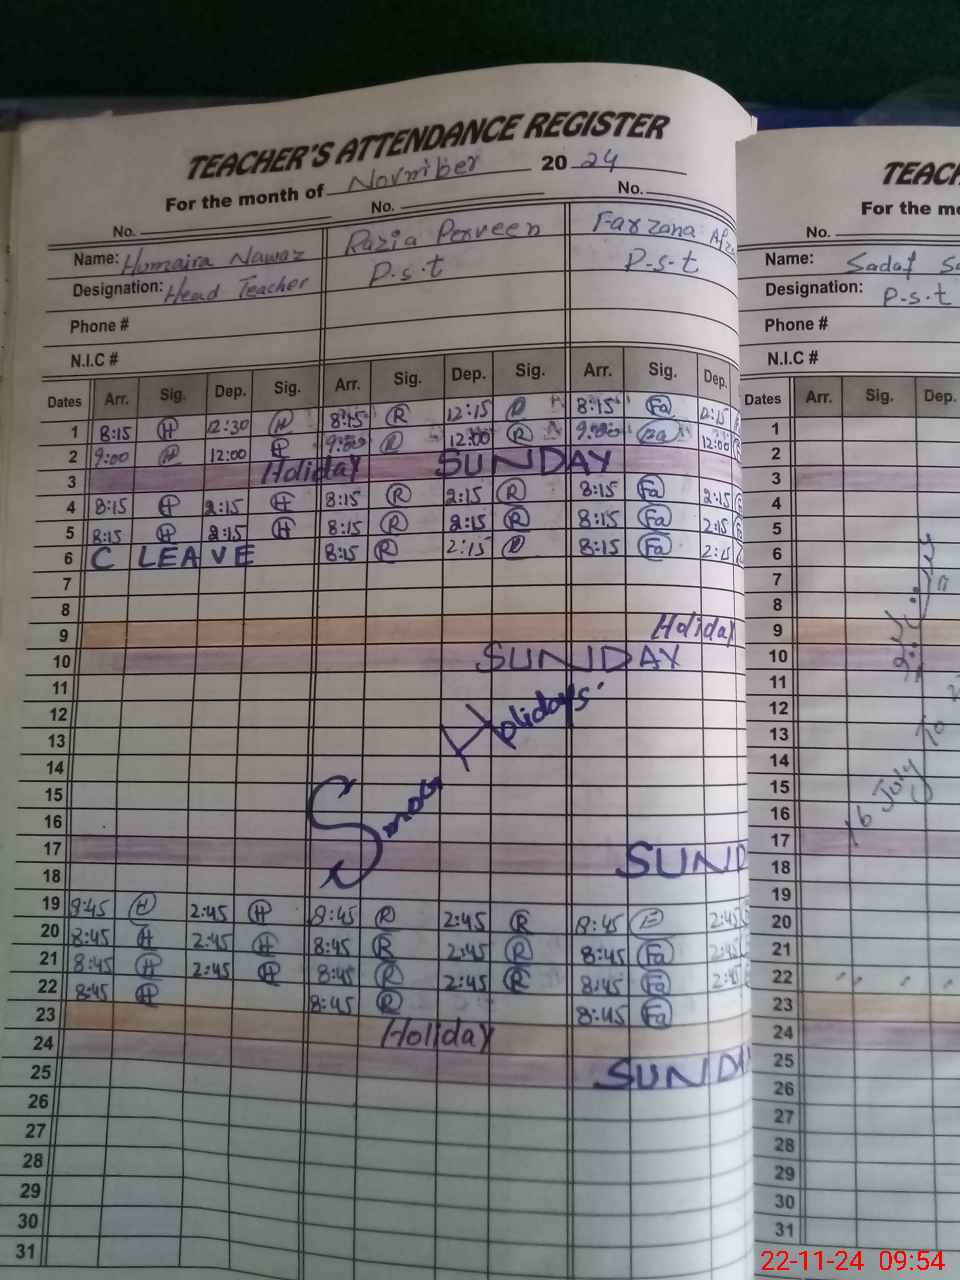 TEACHER'S ATTENDANCE REGISTER
For the month of Novmiber 2024
No. No. No.
Name: Humaira Nawaz Razia Perveen Farzana
Designation: Head Teacher P.s.t P-s-t
Phone #
N.I.C #
Dates Arr. Sig. Dep. Sig. Arr. Sig. Dep. Sig. Arr. Sig. Dep.
1 8:15 H 12:30 H 8:15 R 12:15 R 8:15 Fa 12:15
2 9:00 H 12:00 H 9:00 R 12:00 R 9:00 Fa 12:00
3 Holiday SUNDAY
4 8:15 H 2:15 H 8:15 R 2:15 R 8:15 Fa 2:15
5 8:15 H 2:15 H 8:15 R 2:15 R 8:15 Fa 2:15
6 C LEAVE 8:15 R 2:15 R 8:15 Fa 2:15
7
8
9 Holiday
10 SUNDAY
11
12
13
14
15
16
Smog Holidays.
17 SUND
18
19 8:45 H 2:45 H 8:45 R 2:45 R 8:45 F 2:45
20 8:45 H 2:45 H 8:45 R 2:45 R 8:45 Fa 2:45
21 8:45 H 2:45 H 8:45 R 2:45 R 8:45 Fa 2:45
22 8:45 H 8:45 R 8:45 Fa
23 Holiday
24 SUNDA
25
26
27
28
29
30
31
TEACH
For the mo
No.
Name: Sadaf
Designation: P-s-t
Phone #
N.I.C #
Dates Arr. Sig. Dep.
1
2
3
4
5
6
7
8
9
10
11
12
13
14
15
16
16 July To
17
18
19
20
21
22
23
24
25
26
27
28
29
30
31
22-11-24 09:54